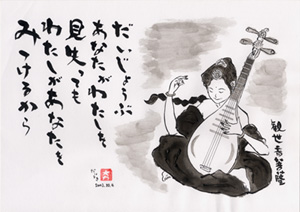 だいじょうぶ
あなたがわたしを
見失っても
わたしがあなたを
みつけるから
観世音菩薩